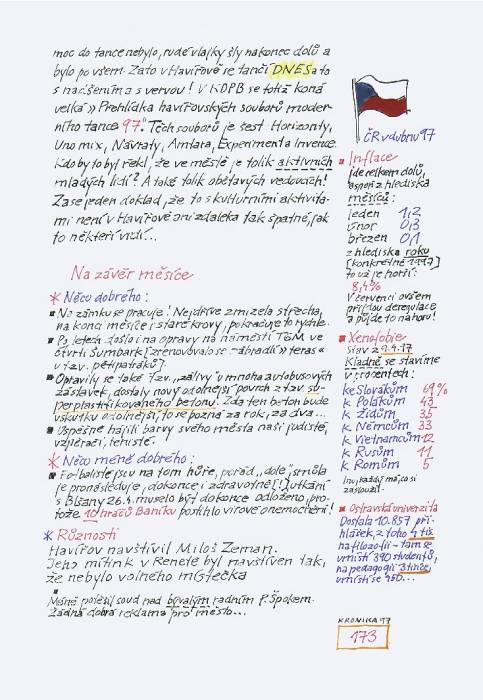 moc do tance nebylo, rudé vlajky šly nakonec dolů a
bylo po všem. Zato v Havířově se tančí DNES a to
s nadšením a s vervou! V KDPB se totiž koná
velká » Prohlídka havířovských souborů moder-
ního tance 97." Těch souborů je šest. Horizonty,
Uno mix, Návraty, Amtara, Experiment a Invence.
Kdo by to byl řekl, že ve městě je tolik aktivních
mladých lidí? A také tolik obětavých vedoucích!
Zase jeden doklad, že to s kulturními aktivita-
mi není v Havířově ani zdaleka tak špatné, jak
to někteří vidí...
Na závěr měsíce
* Něco dobrého:
Na zámku se pracuje! Nejdříve zmizela střecha,
na konci měsíce i staré krovy, pokračuje to rychle.
Po letech došlo i na opravy na náměstí TGM ve
čtvrti Šumbark [zrenovovalo se "zábradlí" teras
u tzv. pětipatráků].
Opravily se také tzv. "zálivy" u mnoha autobusových
zastávek, dostaly nový odolnější povrch z tzv. su-
perplastifikovaného betonu. Zda ten beton bude
vskutku odolnější, to se pozná za rok, za dva...
Úspěšně hájili barvy svého města naši judisté,
vzpěrači, tenisté.
* Něco méně dobrého:
Fotbalisté jsou na tom hůře, pořád "dole", smůla
je pronásleduje, dokonce i zdravotně [! utkání
s Blšany 26.4. muselo být dokonce odloženo, pro-
tože 10 hráčů Baníku postihlo virové onemocnění!
* Různosti
Havířov navštívil Miloš Zeman.
Jeho mítink v Renetě byl navštíven tak,
že nebylo volného místečka
Méně potěšil soud nad bývalým radním P. Špokem.
Žádná dobrá reklama pro město...
ČR v dubnu 97
Inflace
jde celkem dolů,
aspoň z hlediska
měsíců:
leden 1,2
únor 0,3
březen 0,1
z hlediska roku
[konkrétně 1997]
to už je horší:
8,4%
V červenci ovšem
přijdou deregulace
a půjde to nahoru!
Xenofobie
Stav z 9.4.97
Kladně se stavíme
v procentech:
ke Slovákům 69%
k Polákům 43
k Židům 35
k Němcům 33
k Vietnamcům 12
k Rusům 11
k Romům 5
Inu, každý má, co si
zasloužil.
Ostravská univerzita
Dostala 10.857 při-
hlášek, z toho 4 tis.
na filozofii - tam se
umístí 390 studentů,
na pedagogii 3 tisíce,
umístí se 450...
KRONIKA 97
173